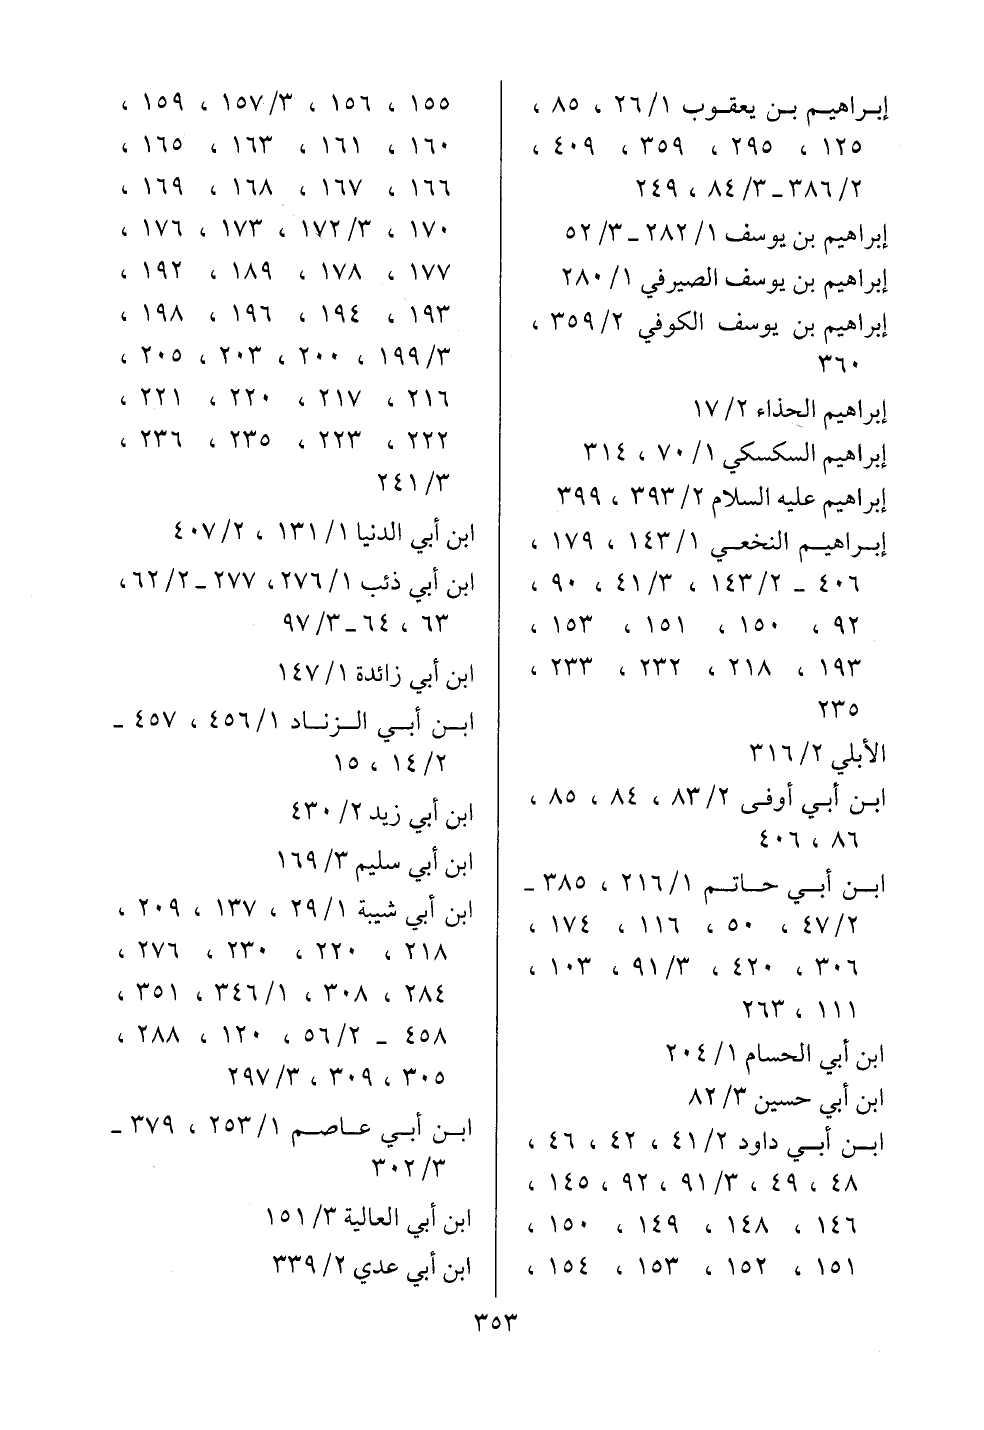 إبراهيم بن يعقوب ١/ ٢٦ ، ٨٥ ،
١٢٥ ، ٢٩٥ ، ٣٥٩ ، ٤٠٩ ،
٢/ ٣٨٦ ـ ٣/ ٨٤ ، ٢٤٩
إبراهيم بن يوسف ١/ ٢٨٢ ـ ٣/ ٥٢
إبراهيم بن يوسف الصيرفي ١/ ٢٨٠
إبراهيم بن يوسف الكوفي ٢/ ٣٥٩ ،
٣٦٠
إبراهيم الحذاء ٢/ ١٧
إبراهيم السكسكي ١/ ٧٠ ، ٣١٤
إبراهيم عليه السلام ٢/ ٣٩٣ ، ٣٩٩
إبراهيم النخعي ١/ ١٤٣ ، ١٧٩ ،
٤٠٦ ـ ٢/ ١٤٣ ، ٣/ ٤١ ، ٩٠ ،
٩٢ ، ١٥٠ ، ١٥١ ، ١٥٣ ،
١٩٣ ، ٢١٨ ، ٢٣٢ ، ٢٣٣ ،
٢٣٥
الأبلي ٢/ ٣١٦
ابن أبي أوفى ٢/ ٨٣ ، ٨٤ ، ٨٥ ،
٨٦ ، ٤٠٦
ابن أبي حاتم ١/ ٢١٦ ، ٣٨٥ ـ
٢/ ٤٧ ، ٥٠ ، ١١٦ ، ١٧٤ ،
٣٠٦ ، ٤٢٠ ، ٣/ ٩١ ، ١٠٣ ،
١١١ ، ٢٦٣
ابن أبي الحسام ١/ ٢٠٤
ابن أبي حسين ٣/ ٨٢
ابن أبي داود ٢/ ٤١ ، ٤٢ ، ٤٦ ،
٤٨ ، ٤٩ ، ٣/ ٩١ ، ٩٢ ، ١٤٥ ،
١٤٦ ، ١٤٨ ، ١٤٩ ، ١٥٠ ،
١٥١ ، ١٥٢ ، ١٥٣ ، ١٥٤ ،
١٥٥ ، ١٥٦ ، ٣/ ١٥٧ ، ١٥٩ ،
١٦٠ ، ١٦١ ، ١٦٣ ، ١٦٥ ،
١٦٦ ، ١٦٧ ، ١٦٨ ، ١٦٩ ،
١٧٠ ، ٣/ ١٧٢ ، ١٧٣ ، ١٧٦ ،
١٧٧ ، ١٧٨ ، ١٨٩ ، ١٩٢ ،
١٩٣ ، ١٩٤ ، ١٩٦ ، ١٩٨ ،
٣/ ١٩٩ ، ٢٠٠ ، ٢٠٣ ، ٢٠٥ ،
٢١٦ ، ٢١٧ ، ٢٢٠ ، ٢٢١ ،
٢٢٢ ، ٢٢٣ ، ٢٣٥ ، ٢٣٦ ،
٣/ ٢٤١
ابن أبي الدنيا ١/ ١٣١ ، ٢/ ٤٠٧
ابن أبي ذئب ١/ ٢٧٦ ، ٢٧٧ ـ ٢/ ٦٢ ،
٦٣ ، ٦٤ ـ ٣/ ٩٧
ابن أبي زائدة ١/ ١٤٧
ابن أبي الزناد ١/ ٤٥٦ ، ٤٥٧ ـ
٢/ ١٤ ، ١٥
ابن أبي زيد ٢/ ٤٣٠
ابن أبي سليم ٣/ ١٦٩
ابن أبي شيبة ١/ ٢٩ ، ١٣٧ ، ٢٠٩ ،
٢١٨ ، ٢٢٠ ، ٢٣٠ ، ٢٧٦ ،
٢٨٤ ، ٣٠٨ ، ١/ ٣٤٦ ، ٣٥١ ،
٤٥٨ ـ ٢/ ٥٦ ، ١٢٠ ، ٢٨٨ ،
٣٠٥ ، ٣٠٩ ، ٣/ ٢٩٧
ابن أبي عاصم ١/ ٢٥٣ ، ٣٧٩ ـ
٣/ ٣٠٢
ابن أبي العالية ٣/ ١٥١
ابن أبي عدي ٢/ ٣٣٩
٣٥٣